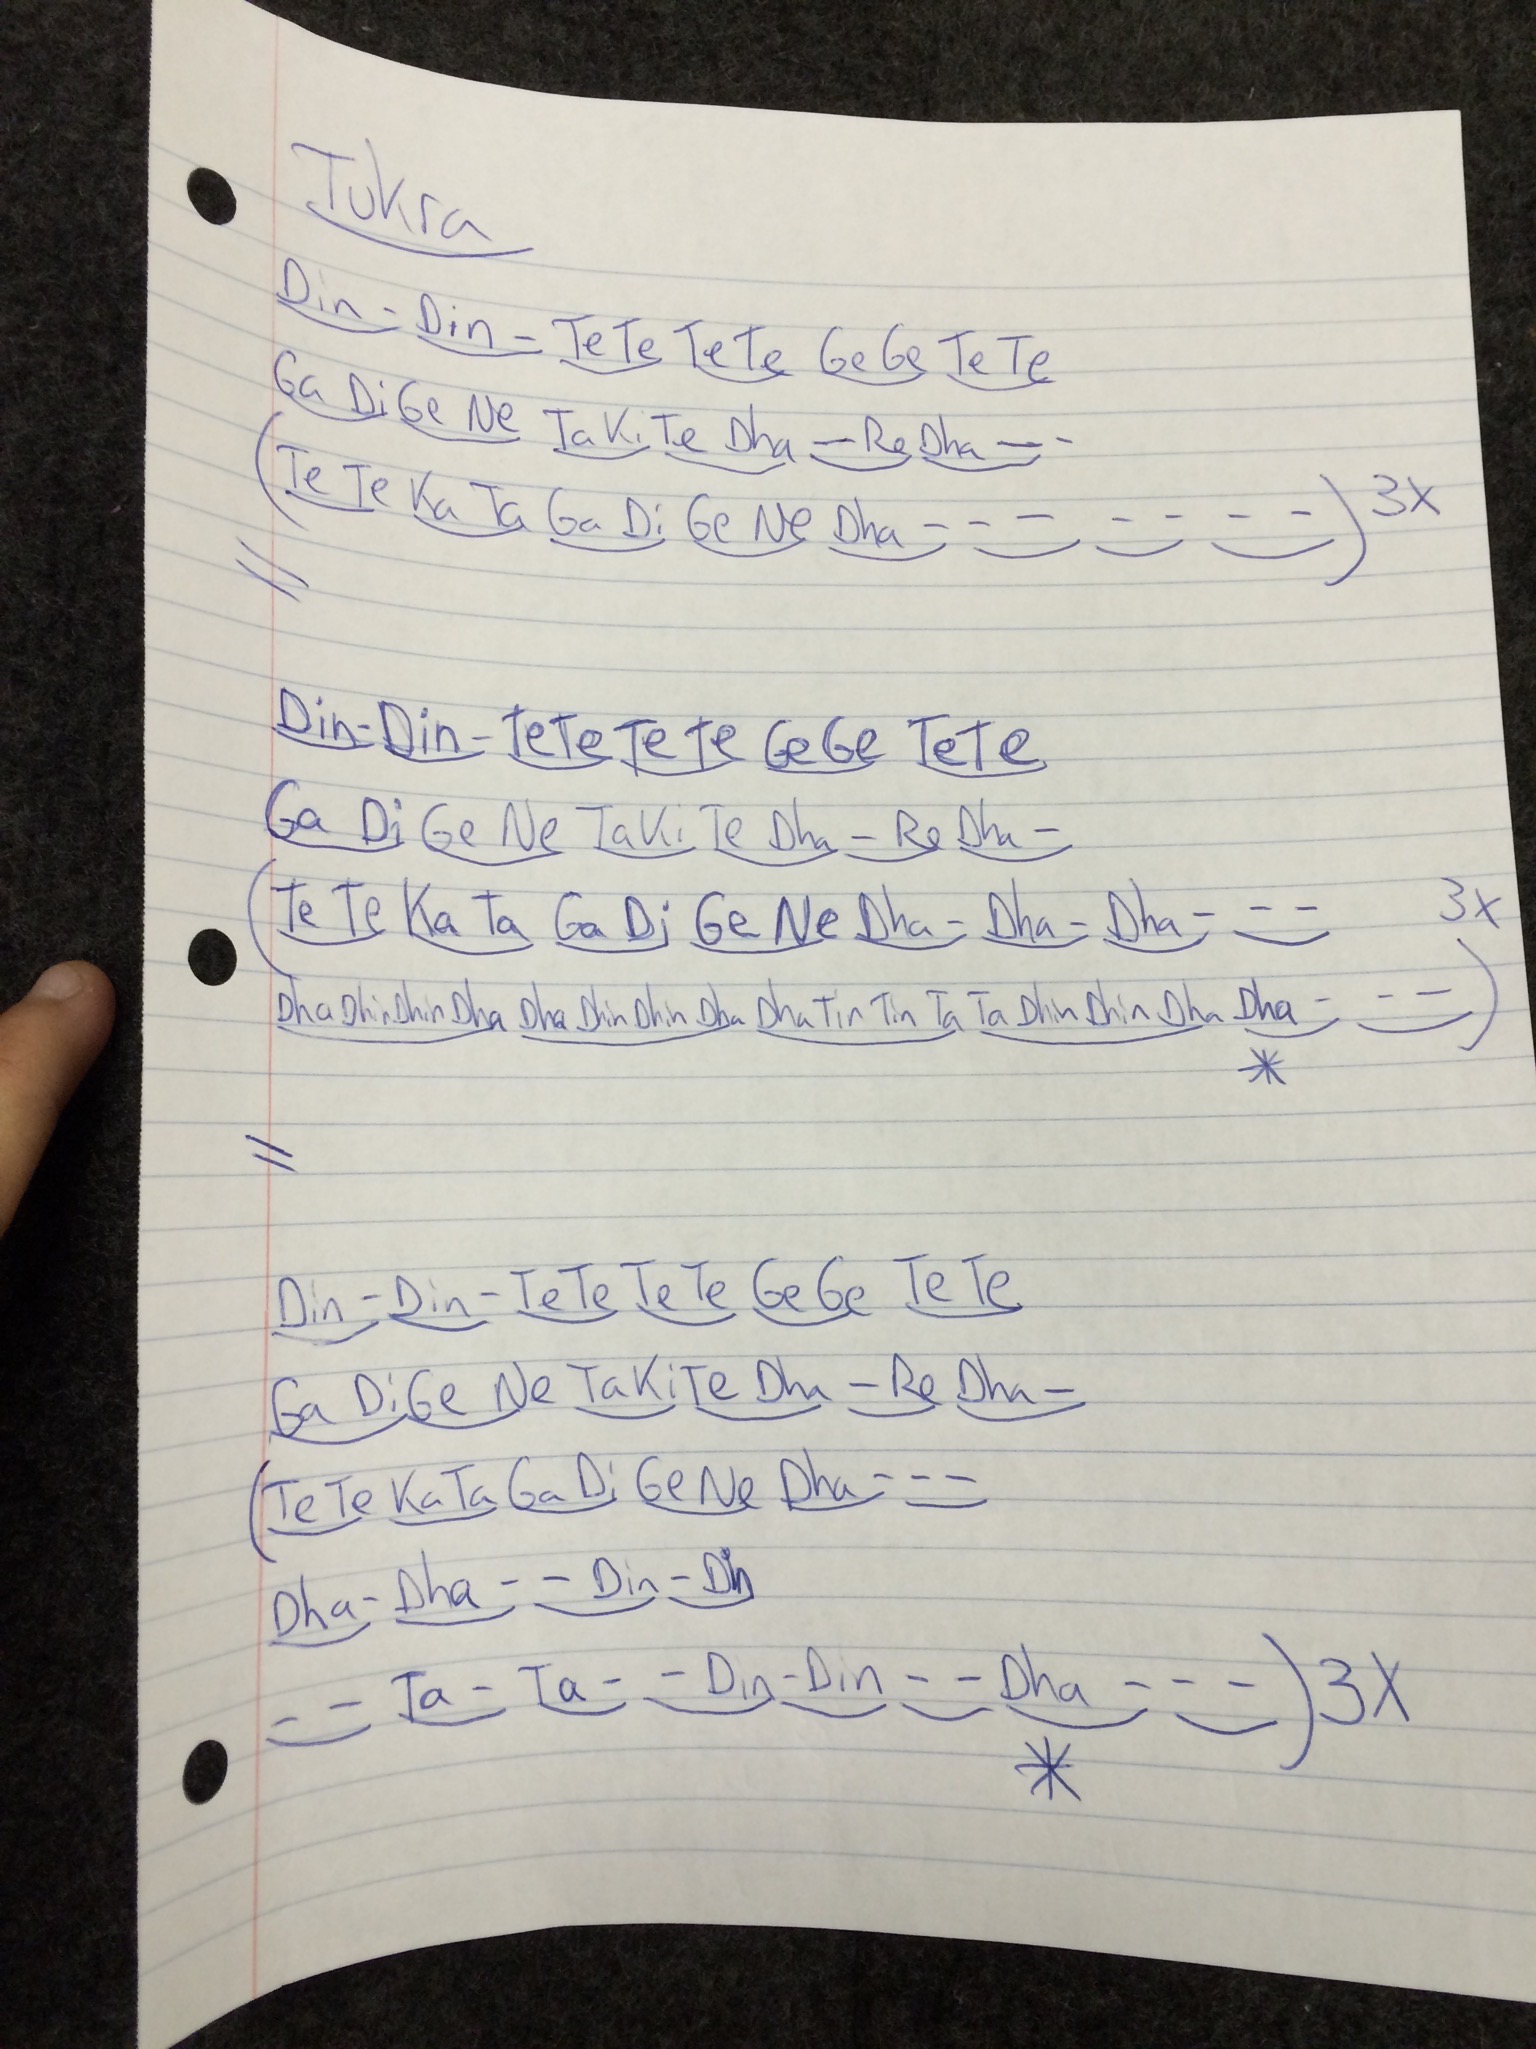 Tukra
Din - Din - TeTe TeTe GeGe TeTe
Ga Di Ge Ne TaKi Te Dha - Re Dha - -
(Te Te Ka Ta Ga Di Ge Ne Dha - - - - - - -) 3X
=
Din - Din - TeTe TeTe GeGe TeTe
Ga Di Ge Ne TaKi Te Dha - Re Dha -
(Te Te Ka Ta Ga Di Ge Ne Dha - Dha - Dha - - - 3X
Dha Dhin Dhin Dha Dha Dhin Dhin Dha Dha Tin Tin Ta Ta Dhin Dhin Dha Dha - - -)
*
=
Din - Din - TeTe TeTe GeGe TeTe
Ga Di Ge Ne TaKi Te Dha - Re Dha -
(TeTe KaTa GaDi GeNe Dha - - -
Dha - Dha - - Din - Din
- - Ta - Ta - - Din - Din - - Dha - - -) 3X
*